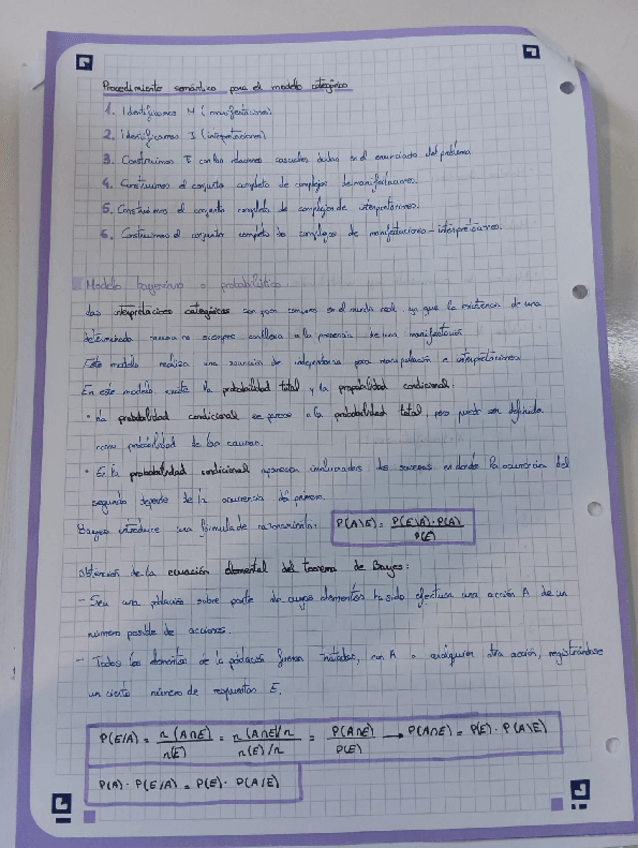 Procedimiento semántico para el modelo categórico
1. Identificamos M (manifestaciones)
2. Identificamos I (interpretaciones)
3. Construimos con las relaciones causales dadas en el enunciado del problema
4. Construimos el conjunto completo de complejos de manifestaciones.
5. Construimos el conjunto completo de complejos de interpretaciones.
6. Construimos el conjunto completo de complejos de manifestaciones - interpretaciones.
Modelo bayesiano o probabilístico
Las interpretaciones categóricas son poco comunes en el mundo real, ya que la existencia de una
determinada causa no siempre conlleva a la presencia de una manifestación
Este modelo realiza una de para manipulación e interpretaciones
En este modelo, existe la probabilidad total y la probabilidad condicional.
• La probabilidad condicional se parece a la probabilidad total, pero puede ser definida
como probabilidad de las causas.
• En la probabilidad condicional aparecen involucrados dos sucesos en donde la ocurrencia del
segundo depende de la ocurrencia del primero.
Bayes introduce una fórmula de razonamiento: P(A\E) = P(E\A)·P(A)
P(E)
Obtención de la ecuación elemental del teorema de Bayes:
- Sea una población sobre parte de cuyos elementos ha sido efectuada una acción A de un
número posible de acciones.
- Todos los elementos de la población fueron tratados, con A o cualquier otra acción, registrándose
un cierto número de respuestas E.
P(E/A) = n(A∩E) = n(A∩E)/n = P(A∩E) → P(A∩E) = P(E)· P(A\E)
n(E) n(E)/n P(E)
P(A)· P(E/A) = P(E)· P(A/E)